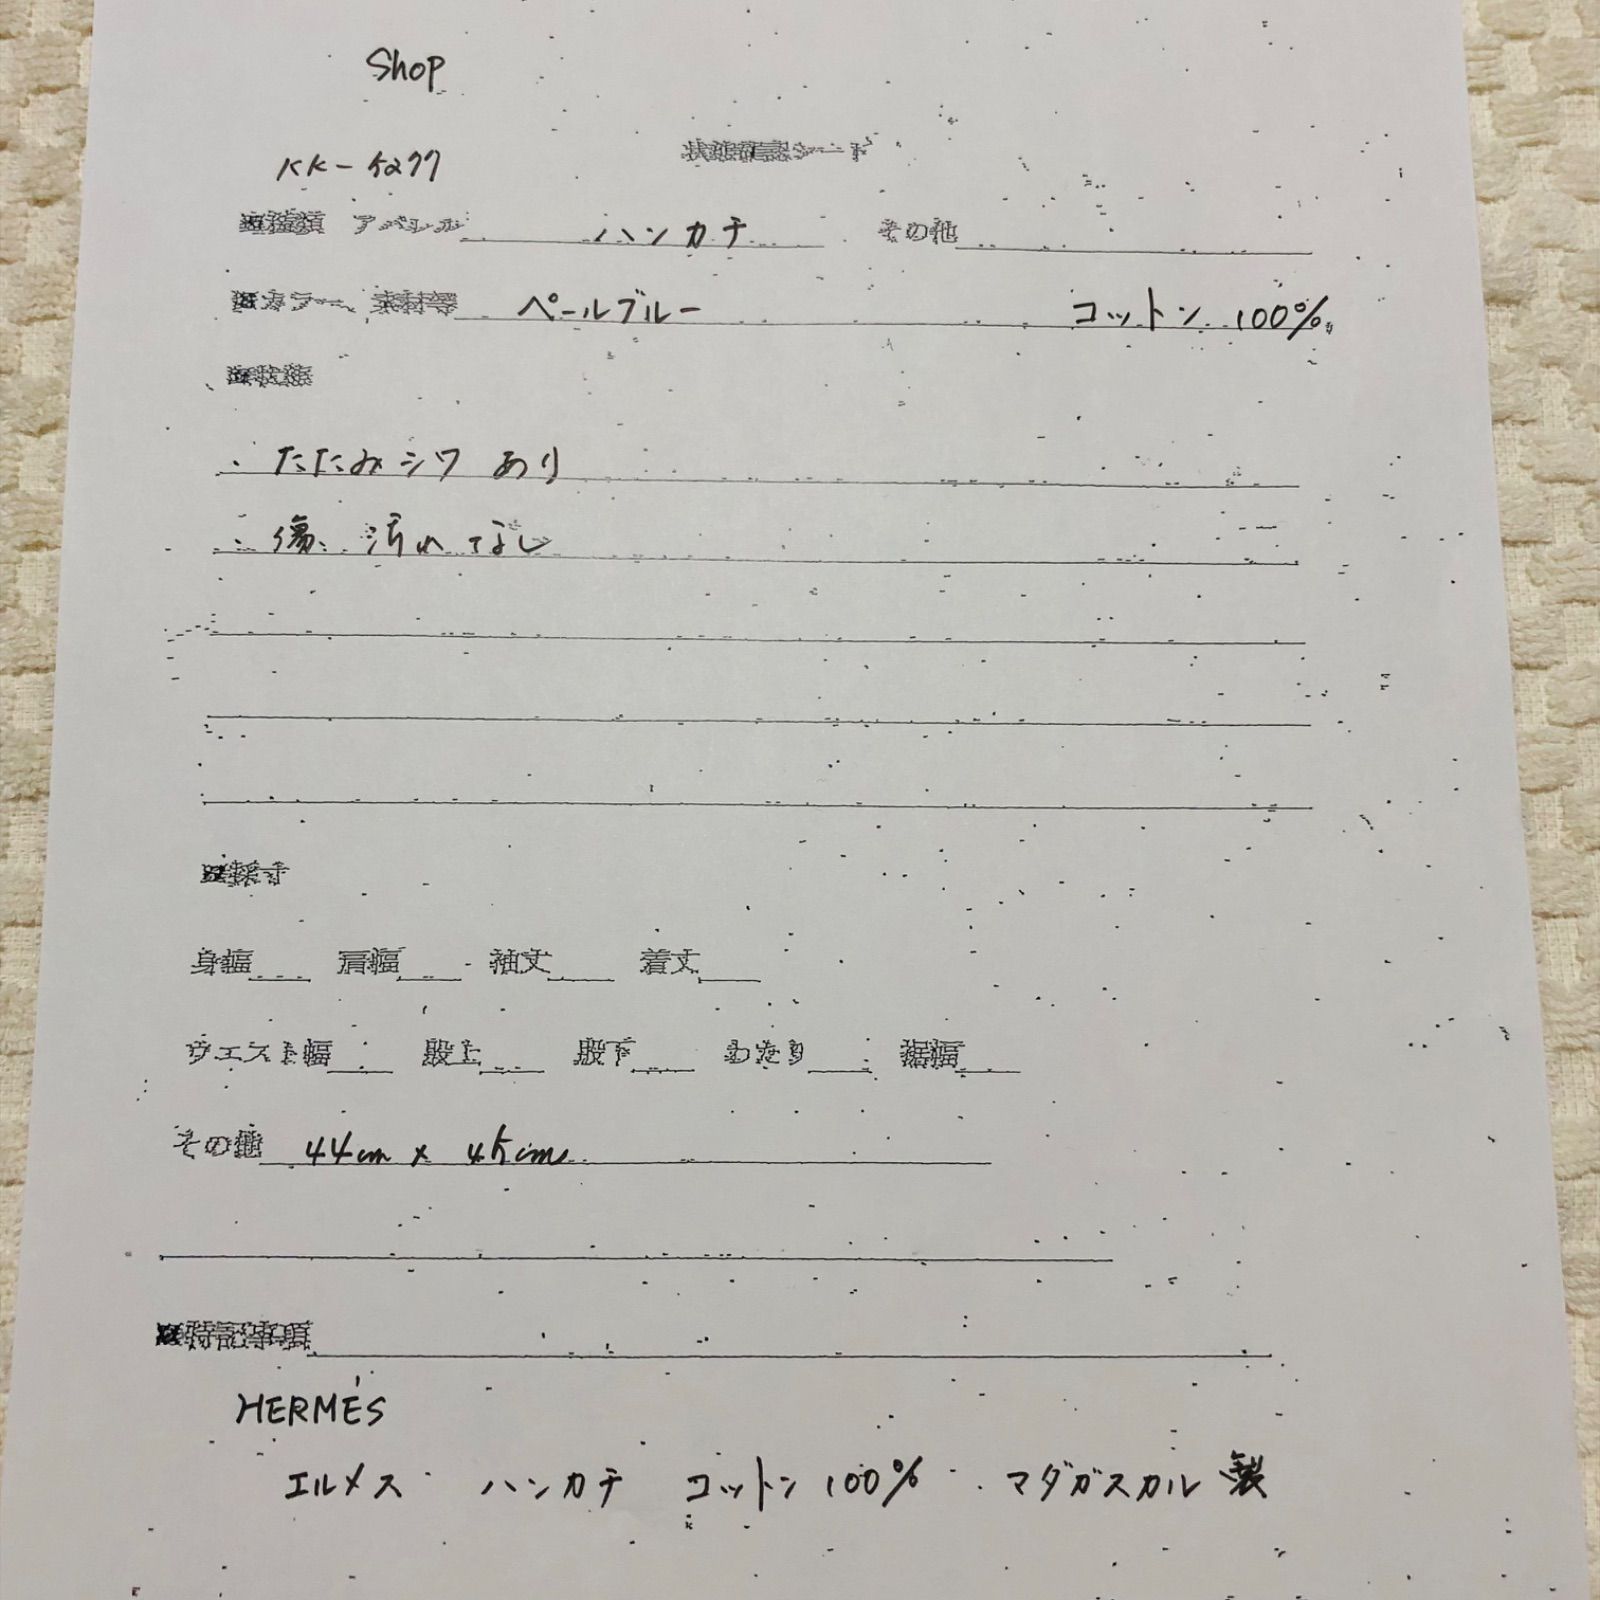 Shop
状態確認シート
KK-5277
■種類 アパレル ハンカチ その他
■カラー、素材等 ペールブルー コットン 100%
■状態
・たたみシワ あり
・傷、汚れ なし
■採寸
身幅 肩幅 袖丈 着丈
ウエスト幅 股上 股下 わたり 裾幅
その他 44cm × 45cm
■特記事項
HERMÉS
エルメス ハンカチ コットン 100% マダガスカル製